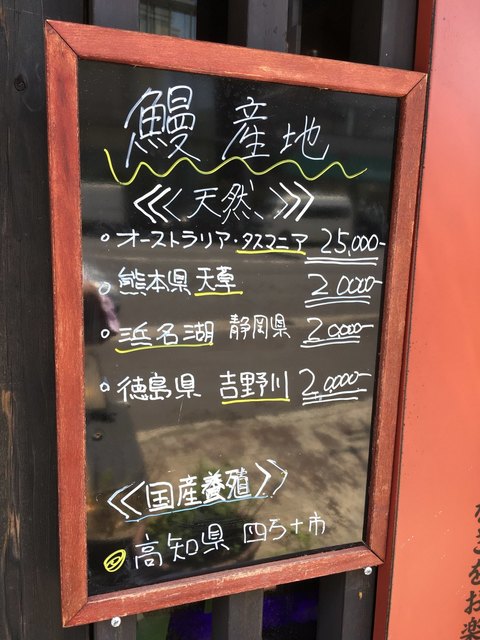 鰻 産地
《〈天然〉》
オーストラリア・タスマニア 25,000-
熊本県 天草 20000-
浜名湖 静岡県 20000-
徳島県 吉野川 20000-
《国産養殖》
高知県 四万十市
なぎをお楽